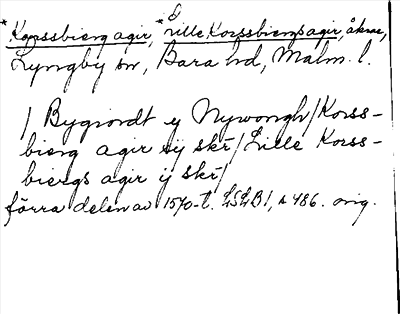 *Korssbierg agir, *Lille Korssbiergs agir, åkrar,
Lyngby sn, Bara hd, Malm. l.
/ Bygiordt y Nywongh/Korss-
bierg agir iij skr/Lille Korss-
biergs agir ij skr/
förra delen av 1570-t. LSLB1, s 486. orig.